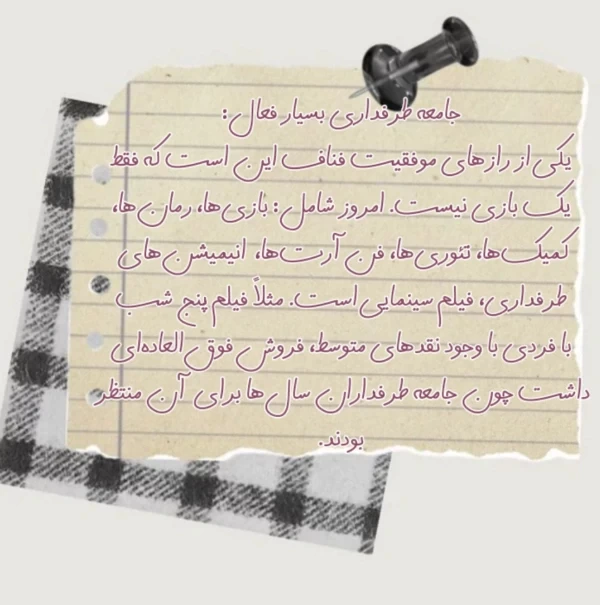 جامعه طرفداری بسیار فعال :
یکی از رازهای موفقیت فناف این است که فقط
یک بازی نیست. امروز شامل : بازی‌ها، رمان‌ها،
کمیک‌ها، تئوری‌ها، فن آرت‌ها، انیمیشن‌های
طرفداری، فیلم سینمایی است. مثلاً فیلم پنج شب
با فردی با وجود نقدهای متوسط، فروش فوق‌العاده‌ای
داشت چون جامعه طرفداران سال‌ها برای آن منتظر
بودند.